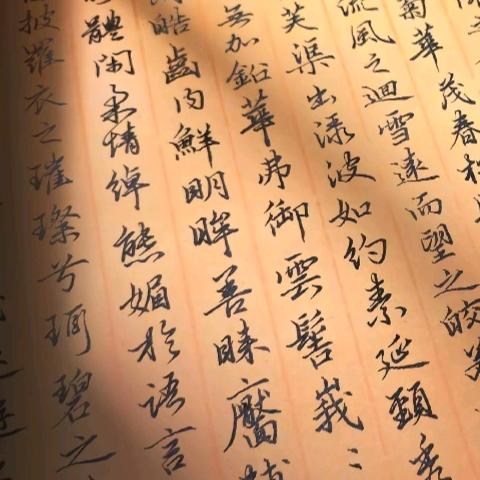 菊華茂春
流風之迴雪遠而望之皎
芙渠出淥波如約素延頸秀
無加鉛華弗御雲髻峩〻
皓齒內鮮明眸善睞靨輔
體閑柔情綽態媚於語言
披羅衣之璀璨兮珥碧之